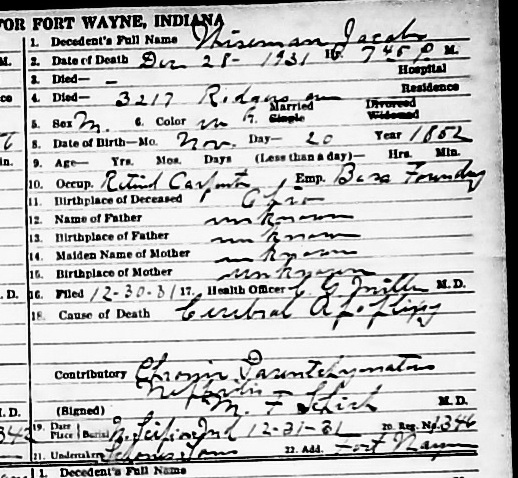 FOR FORT WAYNE, INDIANA
1. Decedent's Full Name Wiseman Jacob
M. 2. Date of Death Dec 28- 1931 H. 745 P. M.
3. Died— - Hospital
ce 4. Died— 3217 Residence
5. Sex M. 6. Color w 7. Married Single Divorced Widowed
8. Date of Birth—Mo. Nov. Day— 20 Year 1852
in. 9. Age— Yrs. Mos. Days (Less than a day)— Hrs. Min.
10. Occup. Retired Carpenter Emp. Bass Foundry
11. Birthplace of Deceased Ohio
12. Name of Father unknown
13. Birthplace of Father unknown
14. Maiden Name of Mother unknown
15. Birthplace of Mother unknown
. D. 16. Filed 12-30-31 17. Health Officer C G Miller M. D.
18. Cause of Death Cerebral
Contributory Chronic
Nephritis
. D. (Signed) M. F. Schick M. D.
342 19. Date Place Burial Ind 12-31-31 20. Reg. No. 1346
21. Undertaker Sons 22. Add. Fort Wayne
1. Decedent's Full Name